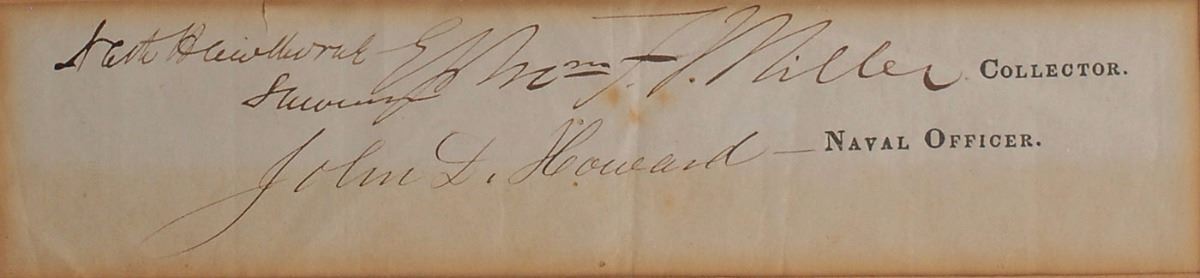 Nath Hawthorne Ephm. F. Miller COLLECTOR.
Surveyor
John D. Howard — NAVAL OFFICER.